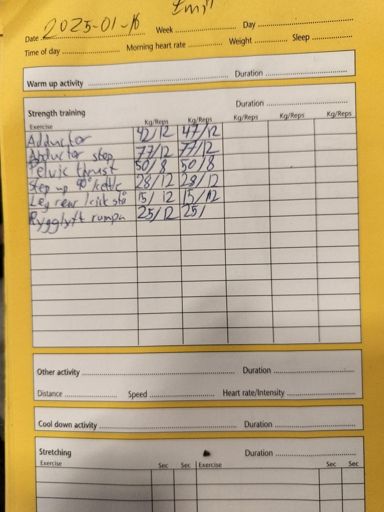 Emil
Date 2025-01-16 Week Day
Time of day Morning heart rate Weight Sleep
Warm up activity Duration
Strength training Duration
Exercise Kg/Reps Kg/Reps Kg/Reps Kg/Reps Kg/Reps
Adductor 42/12 47/12
Abductor step 77/12 77/12
Pelvic thrust 50/8 50/8
Step up 90° 28/12 28/12
Leg rear 15/12 15/12
Rygglyft rumpa 25/12 25/
Other activity Duration
Distance Speed Heart rate/Intensity
Cool down activity Duration
Stretching Duration
Exercise Sec Sec Exercise Sec Sec